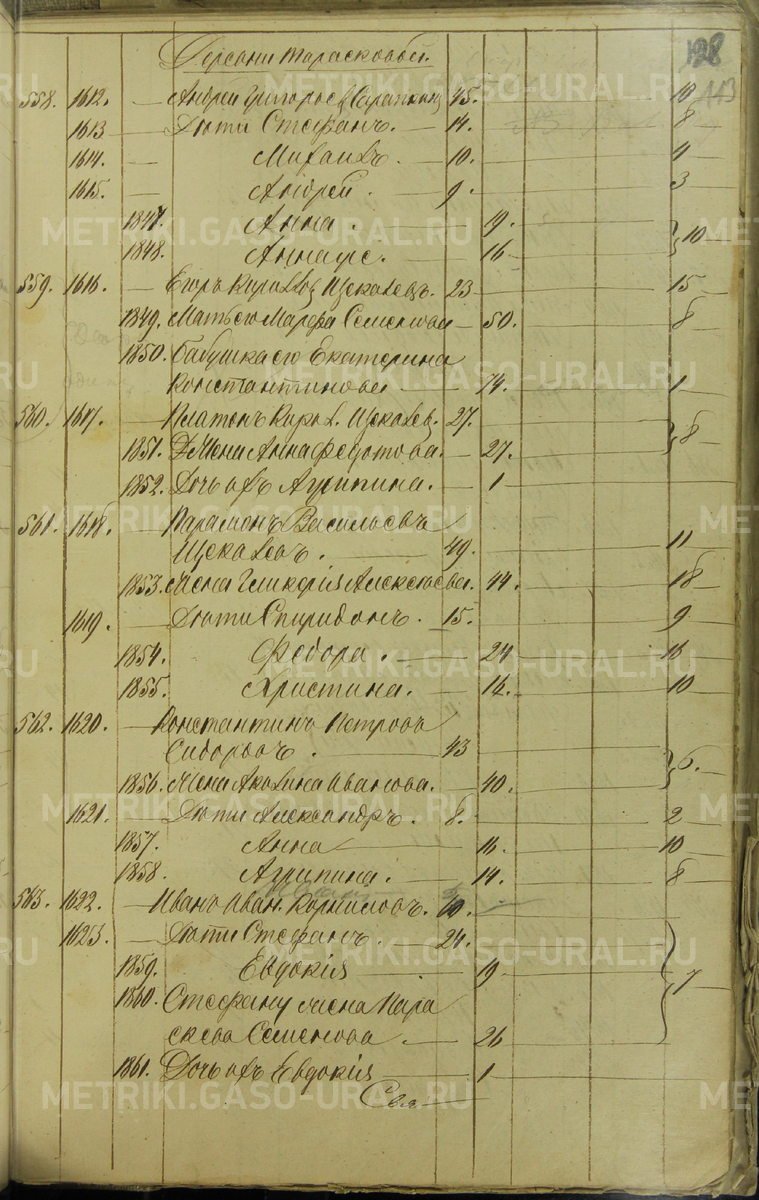 198
113
Деревни Тарасковой.
558. 1612. — Андрей Григорьевъ 45. — 10
1613 — Дѣти Стефанъ. — 14. — 8
1614. — Михаилъ. — 10. — 4
1615. — Андрей. — 9. — 3
1847. Анна. — 19. — } 10
1848. Анна — 16
559. 1616. — Егоръ Кирилловъ Щекалевъ. 23 — 15
1849. Мать его Марфа Семенова — 50. — 8
1850. Бабушка его Екатерина
Константинова — 74. — 1
560. 1617. — Платонъ Кирил. Щекалев. 27. } 8
1851. Жена Анна Федотова. — 27.
1852. Дочь ихъ Агрипина. — 1
561. 1618. — Парамонъ Васильевъ
Щекалевъ. — 49. — 11
1853. Жена Гликерія Алексѣева. 44. — 18
1619. — Дѣти Спиридонъ. 15. — 9
1854. Федора. — 24 — 16
1855. Христина. — 14. — 10
562. 1620. — Константинъ Петровъ
Сидоровъ. — 43
1856. Жена Акилина Иванова. 40. — } 6.
1621. — Дѣти Александръ. 8. — 2
1857. Анна — 16. — 10
1858 Агрипина. — 14. — 8
563. 1622. — Иванъ Иван. Корниловъ. 60. —
1623. — Дѣти Стефанъ. — 24.
1859. Евдокія — 19 — } 7
1860. Стефану жена Пара
скева Семенова. — 26
1861. Дочь ихъ Евдокія — 1
METRIKI.GASO-URAL.RU